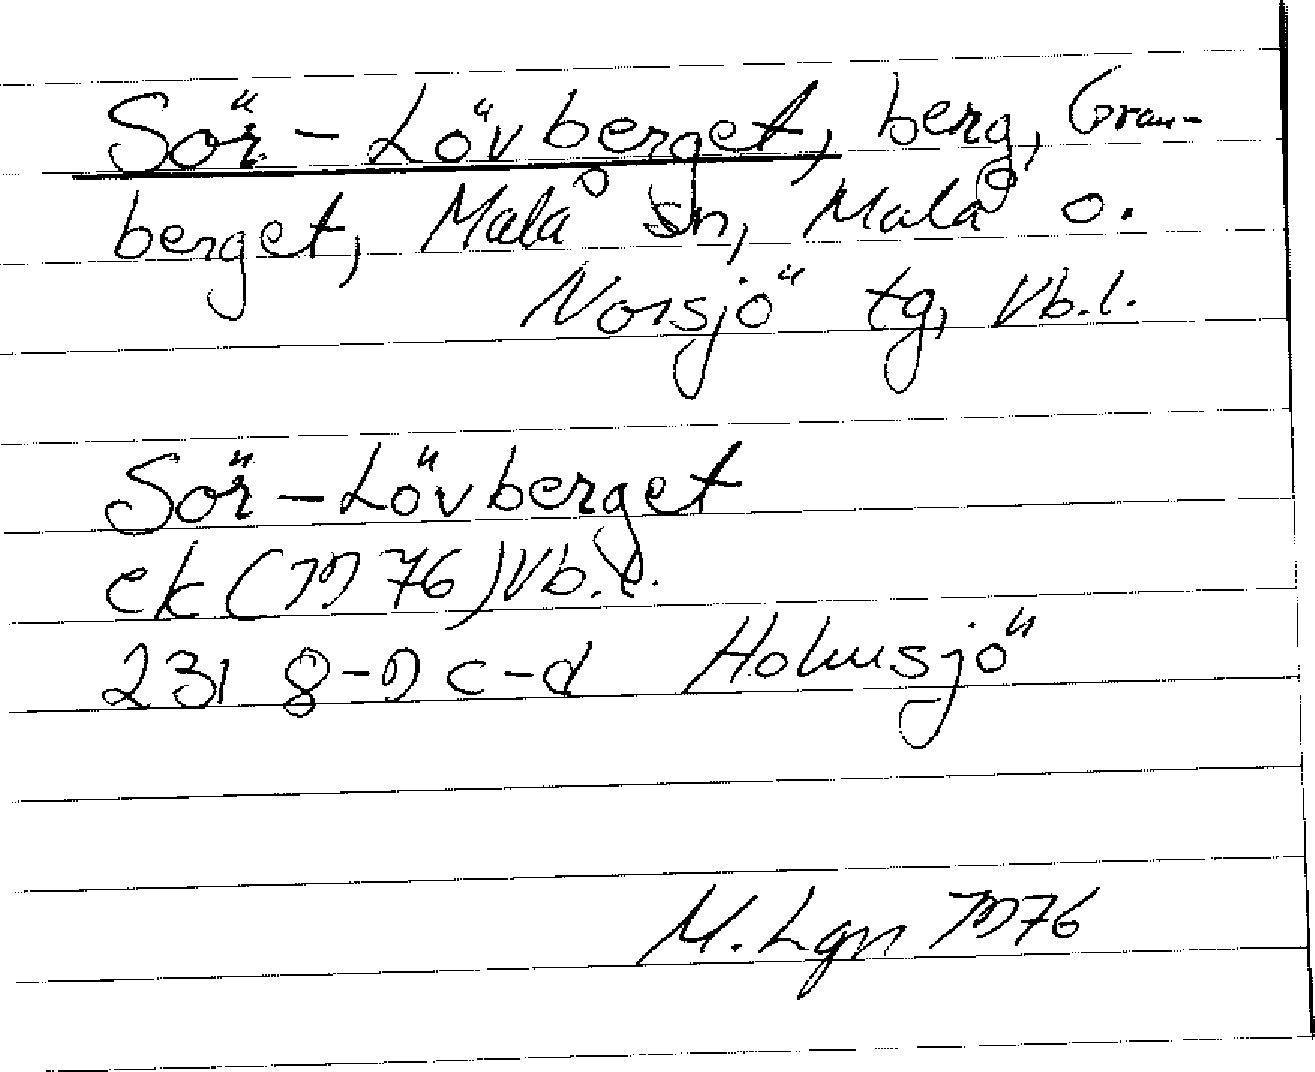 Sör-Lövberget, berg, Gran-
berget, Malå sn, Malå o.
Norsjö tg, Vb.l.
Sör-Lövberget
ek (1976) Vb.l.
231 8-9 c-d Holmsjö
M. Lgn 1976